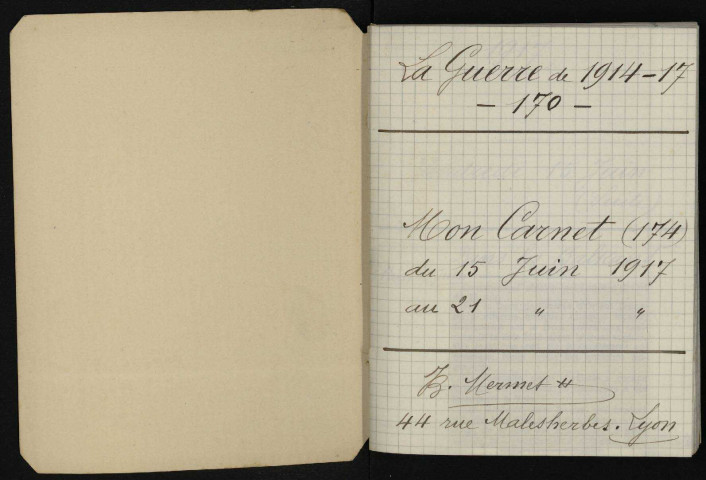 La Guerre de 1914-17
- 170 -
Mon Carnet (174)
du 15 Juin 1917
au 21 " "
Mermet
44 rue Malesherbes. Lyon